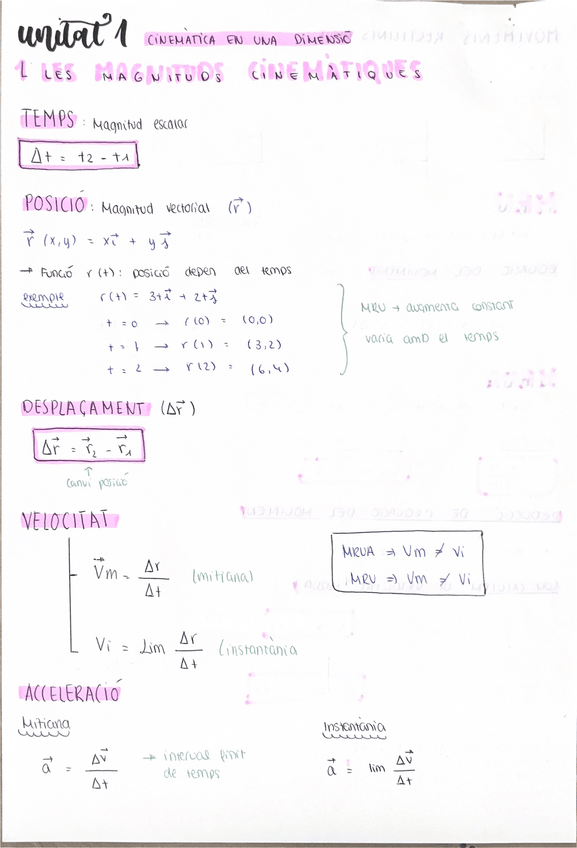 unitat 1 CINEMÀTICA EN UNA DIMENSIÓ
1 LES MAGNITUDS CINEMÀTIQUES
TEMPS : Magnitud escalar
Δt = t2 - t1
POSICIÓ : Magnitud vectorial (r⃗)
r⃗ (x,y) = xi⃗ + yj⃗
→ Funció r(t): posició depen del temps
exemple r(t) = 3ti⃗ + 2tj⃗
t = 0 → r(0) = (0,0)
t = 1 → r(1) = (3,2)
t = 2 → r(2) = (6,4)
MRU → augmenta constant
varia amb el temps
DESPLAÇAMENT (Δr⃗)
Δr⃗ = r⃗2 - r⃗1
↑
canvi posició
VELOCITAT
V⃗m = Δr / Δt (mitjana)
Vi = Lim Δr / Δt (instantània
MRUA ⇒ Vm ≠ Vi
MRU ⇒ Vm ≠ Vi
ACCELERACIÓ
Mitjana
a⃗ = Δv⃗ / Δt → interval finit
de temps
Instantània
a⃗ = lim Δv⃗ / Δt